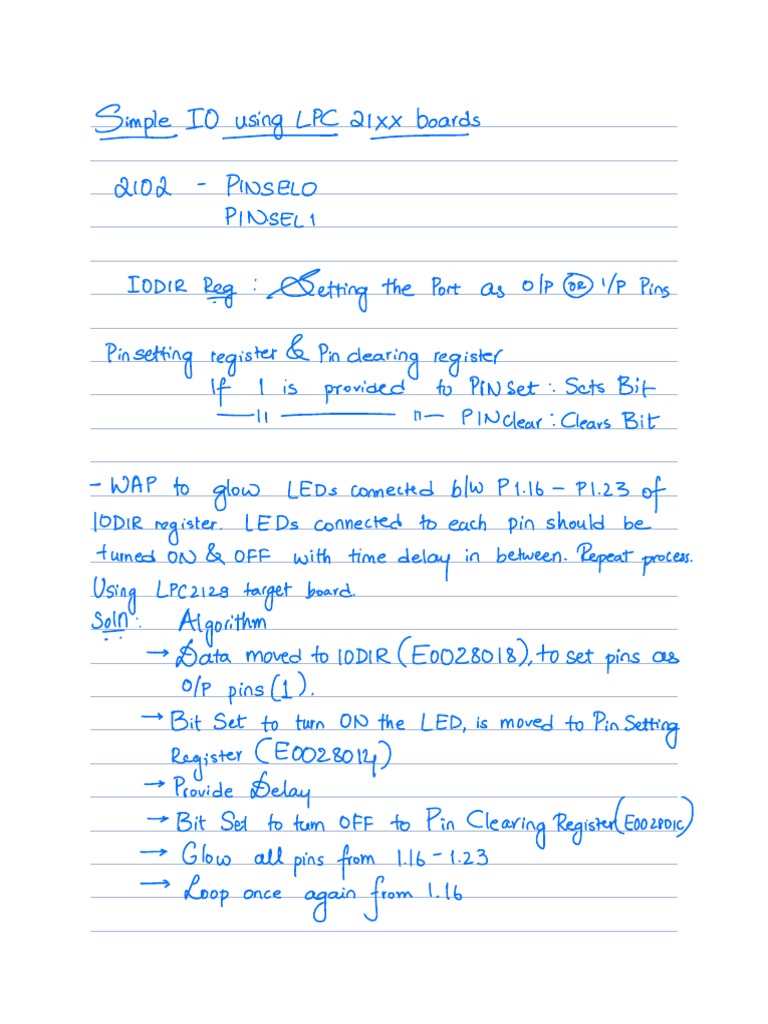 Simple IO using LPC 21XX boards
2102 - PINSEL0
PINSEL1
IODIR Reg : Setting the Port as O/P OR I/P Pins
Pin setting register & Pin clearing register
If 1 is provided to PINset : Sets Bit
—— 11 ———————— 11— PINclear : Clears Bit
- WAP to glow LEDs connected b/w P1.16 - P1.23 of
IODIR register. LEDs connected to each pin should be
turned ON & OFF with time delay in between. Repeat process.
Using LPC2128 target board.
Soln : Algorithm
→ Data moved to IODIR (E0028018), to set pins as
O/P pins (1).
→ Bit Set to turn ON the LED, is moved to Pin Setting
Register (E0028014)
→ Provide Delay
→ Bit Set to turn OFF to Pin Clearing Register (E002801C)
→ Glow all pins from 1.16 - 1.23
→ Loop once again from 1.16